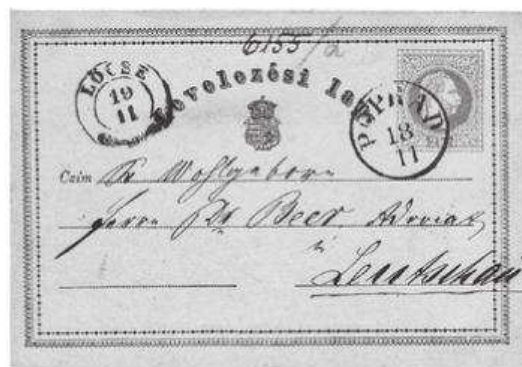 6155/a
LŐCSE
19
11
Levelezési lap
POPRÁD
18
11
Czim Sr Wohlgeborn
Herrn Dr Beer, Advocat
in
Leutschau